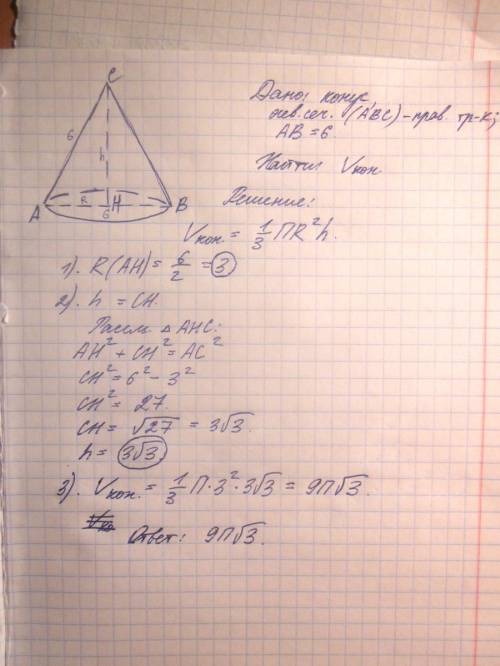 C
6
h
A
R
H
B
6
Дано: конус,
осев. сеч. (ABC) - прав. тр-к;
AB = 6.
Найти: Vкон.
Решение:
Vкон. = 1/3 ПR²h.
1). R(AH) = 6/2 = 3
2). h = CH.
Рассм. △ AHC:
AH² + CH² = AC²
CH² = 6² - 3²
CH² = 27.
CH = √27 = 3√3.
h = 3√3.
3). Vкон. = 1/3 П·3²·3√3 = 9П√3.
Ответ: 9П√3.